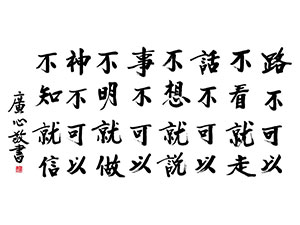 路不可以
不看就走
話不可以
不想就說
事不可以
不明就做
神不可以
不知就信
廣心敬書